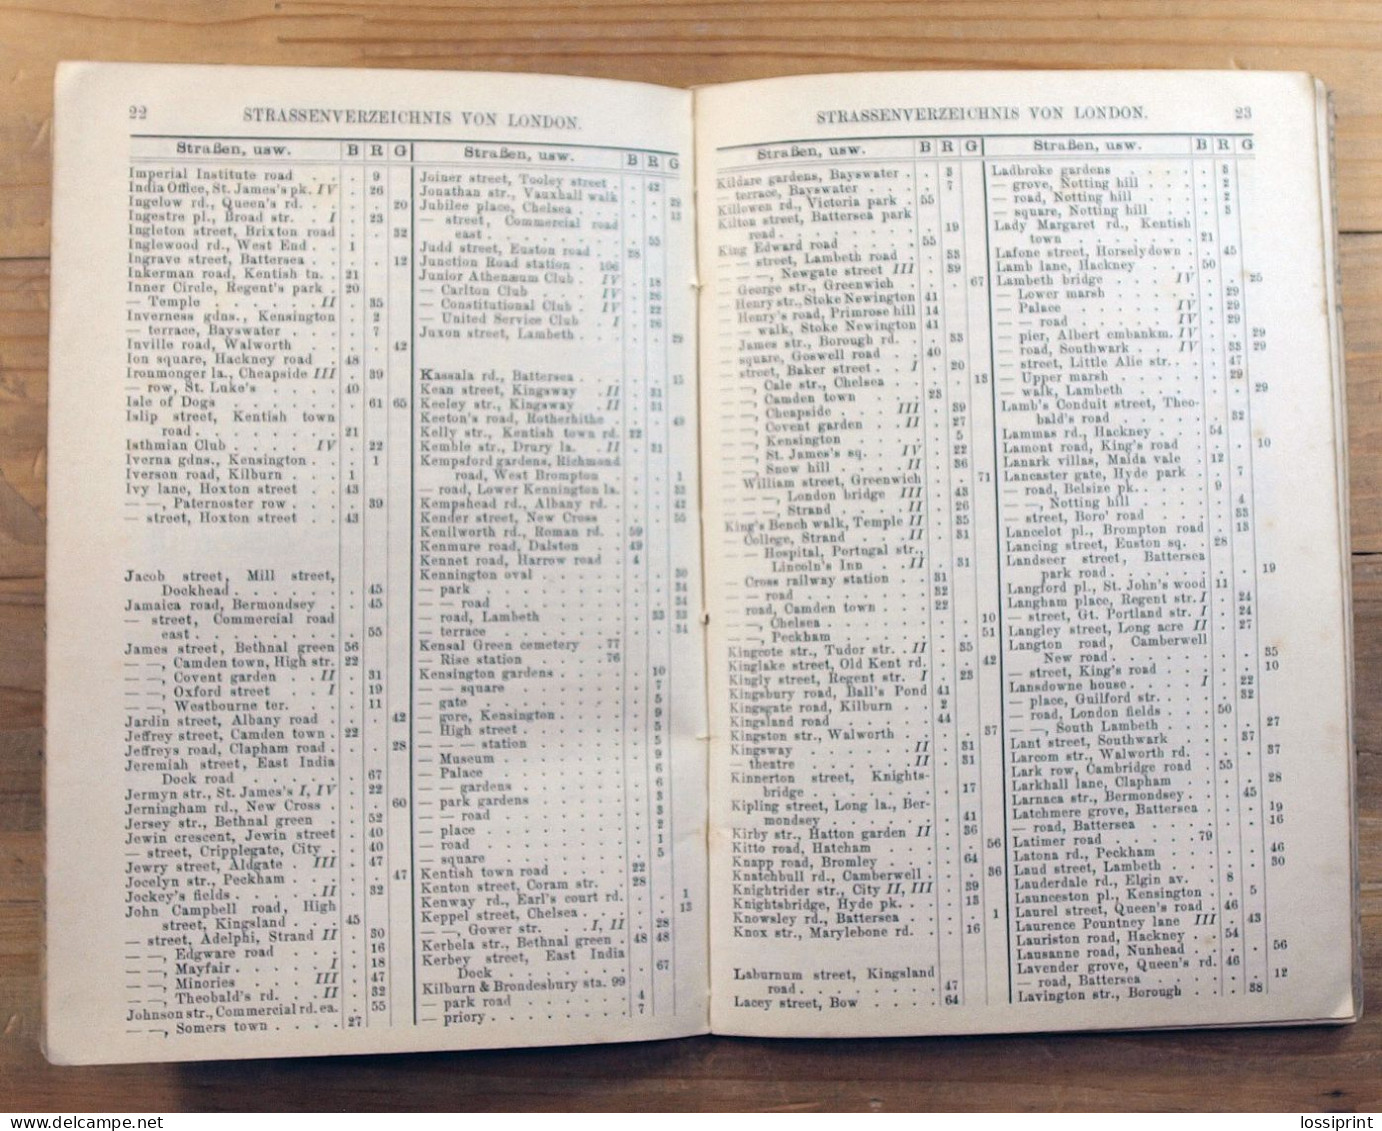 22
STRASSENVERZEICHNIS VON LONDON.
Straßen, usw. B R G
Imperial Institute road . . 9
India Office, St. James's pk. IV . 26
Ingelow rd., Queen's rd. . . . 20
Ingestre pl., Broad str. . I . 23
Ingleton street, Brixton road . . 32
Inglewood rd., West End . . 1
Ingrave street, Battersea . . . . 12
Inkerman road, Kentish tn. . 21
Inner Circle, Regent's park . 20
— Temple . . . . . . II . 35
Inverness gdns., Kensington . 2
— terrace, Bayswater . . . . 7
Inville road, Walworth . . . . 42
Ion square, Hackney road . 48
Ironmonger la., Cheapside III . 39
— row, St. Luke's . . . . 40
Isle of Dogs . . . . . . . 61 65
Islip street, Kentish town
road . . . . . . . . 21
Isthmian Club . . . . . IV . 22
Iverna gdns., Kensington . . . 1
Iverson road, Kilburn . . 1
Ivy lane, Hoxton street . . 43
— —, Paternoster row . . . . 39
— street, Hoxton street . . 43
Jacob street, Mill street,
Dockhead . . . . . . . 45
Jamaica road, Bermondsey . . 45
— street, Commercial road
east . . . . . . . . . 55
James street, Bethnal green 56
— —, Camden town, High str. 22
— —, Covent garden . . II . 31
— —, Oxford street . . I . 19
— —, Westbourne ter. . . . 11
Jardin street, Albany road . . . 42
Jeffrey street, Camden town . 22
Jeffreys road, Clapham road . . . 28
Jeremiah street, East India
Dock road . . . . . . . 67
Jermyn str., St. James's I, IV . 22
Jerningham rd., New Cross . . . 60
Jersey str., Bethnal green . . 52
Jewin crescent, Jewin street . 40
— street, Cripplegate, City . . 40
Jewry street, Aldgate . III . 47
Jocelyn str., Peckham . . . . . 47
Jockey's fields . . . . . II . 32
John Campbell road, High
street, Kingsland . . . . 45
— street, Adelphi, Strand II . 30
— —, Edgware road . . . . 16
— —, Mayfair . . . . . I . 18
— —, Minories . . . . III . 47
— —, Theobald's rd. . . II . 32
Johnson str., Commercial rd. ea. . 55
— —, Somers town . . . . 27
Straßen, usw. B R G
Joiner street, Tooley street . . 42
Jonathan str., Vauxhall walk . . 29
Jubilee place, Chelsea . . . . . 13
— street, Commercial road
east . . . . . . . . . 55
Judd street, Euston road . . 28
Junction Road station . 106
Junior Athenæum Club . IV . 18
— Carlton Club . . . IV . 26
— Constitutional Club . IV . 22
— United Service Club . I . 26
Juxon street, Lambeth . . . . . 29
Kassala rd., Battersea . . . . . 15
Kean street, Kingsway . II . 31
Keeley str., Kingsway . II . 31
Keeton's road, Rotherhithe . . . 49
Kelly str., Kentish town rd. 22
Kemble str., Drury la. . II . 31
Kempsford gardens, Richmond
road, West Brompton . . . 1
— road, Lower Kennington la. . . 33
Kempshead rd., Albany rd. . . . 42
Kender street, New Cross . . . 55
Kenilworth rd., Roman rd. . 59
Kenmure road, Dalston . . 49
Kennet road, Harrow road . 4
Kennington oval . . . . . . . 30
— park . . . . . . . . . 34
— — road . . . . . . . . 34
— road, Lambeth . . . . . 33 33
— terrace . . . . . . . . 34
Kensal Green cemetery . 77
— Rise station . . . . 76
Kensington gardens . . . . . 10
— — square . . . . . . . 7
— gate . . . . . . . . . 5
— gore, Kensington . . . . . 9
— High street . . . . . . . 5
— — — station . . . . . . 5
— Museum . . . . . . . . 9
— Palace . . . . . . . . 6
— — gardens . . . . . . . 6
— park gardens . . . . . . 3
— — road . . . . . . . . 3
— place . . . . . . . . . 2
— road . . . . . . . . . 1
— square . . . . . . . . 5
Kentish town road . . . . 22
Kenton street, Coram str. . 28
Kenway rd., Earl's court rd. . . 1
Keppel street, Chelsea . . . . . 13
— —, Gower str. . . I, II . 28
Kerbela str., Bethnal green . 48 48
Kerbey street, East India
Dock . . . . . . . . . 67
Kilburn & Brondesbury sta. 99
— park road . . . . . . . 4
— priory . . . . . . . . 7
STRASSENVERZEICHNIS VON LONDON.
23
Straßen, usw. B R G
Kildare gardens, Bayswater . . 3
— terrace, Bayswater . . . . 7
Killowen rd., Victoria park . 55
Kilton street, Battersea park
road . . . . . . . . . . 19
King Edward road . . . . 55
— — street, Lambeth road . . 33
— — —, Newgate street III . 39
— George str., Greenwich . . . 67
— Henry str., Stoke Newington 41
— Henry's road, Primrose hill 14
— — walk, Stoke Newington 41
— James str., Borough rd. . . 33
— square, Goswell road . . 40
— street, Baker street . . I . 20
— —, Cale str., Chelsea . . . . 13
— —, Camden town . . . . 23
— —, Cheapside . . . III . 39
— —, Covent garden . . II . 27
— —, Kensington . . . . . 5
— —, St. James's sq. . . IV . 22
— —, Snow hill . . . . II . 36
— William street, Greenwich . . 71
— — —, London bridge III . 43
— — —, Strand . . . . II . 26
King's Bench walk, Temple II . 35
— College, Strand . . . II . 31
— — Hospital, Portugal str.,
Lincoln's Inn . . II . 31
— Cross railway station . . 31
— — road . . . . . . . 32
— road, Camden town . . . 22
— —, Chelsea . . . . . . . . 10
— —, Peckham . . . . . . . 51
Kingscote str., Tudor str. . II . 35
Kinglake street, Old Kent rd. . . 42
Kingly street, Regent str. I . 23
Kingsbury road, Ball's Pond 41
Kingsgate road, Kilburn . . 2
Kingsland road . . . . . . 44
Kingston str., Walworth . . . . 37
Kingsway . . . . . . . II . 31
— theatre . . . . . . . II . 31
Kinnerton street, Knights-
bridge . . . . . . . . . 17
Kipling street, Long la., Ber-
mondsey . . . . . . . . 41
Kirby str., Hatton garden II . 36
Kitto road, Hatcham . . . . . 56
Knapp road, Bromley . . . . 64
Knatchbull rd., Camberwell . . . 36
Knightrider str., City II, III . 39
Knightsbridge, Hyde pk. . . . 13
Knowsley rd., Battersea . . . . 1
Knox str., Marylebone rd. . . 16
Laburnum street, Kingsland
road . . . . . . . . . 47
Lacey street, Bow . . . . . 64
Straßen, usw. B R G
Ladbroke gardens . . . . . 3
— grove, Notting hill . . . . 2
— road, Notting hill . . . . 2
— square, Notting hill . . . 3
Lady Margaret rd., Kentish
town . . . . . . . . 21
Lafone street, Horselydown . . 45
Lamb lane, Hackney . . . 50
Lambeth bridge . . . . IV . . 25
— Lower marsh . . . . . . 29
— Palace . . . . . . . IV . 29
— — road . . . . . . IV . 29
— pier, Albert embankm. IV . . 29
— road, Southwark . . . IV . 33 29
— street, Little Alie str. . . . 47
— Upper marsh . . . . . . 29
— walk, Lambeth . . . . . . . 29
Lamb's Conduit street, Theo-
bald's road . . . . . . . 32
Lammas rd., Hackney . . . 54
Lamont road, King's road . . . 10
Lanark villas, Maida vale . 12
Lancaster gate, Hyde park . . 7
— road, Belsize pk. . . . . 9
— —, Notting hill . . . . . 4
— street, Boro' road . . . . 33
Lancelot pl., Brompton road . 13
Lancing street, Euston sq. . 28
Landseer street, Battersea
park road . . . . . . . . 19
Langford pl., St. John's wood 11
Langham place, Regent str. I . 24
— street, Gt. Portland str. I . 24
Langley street, Long acre II . 27
Langton road, Camberwell
New road . . . . . . . . . 35
— street, King's road . . . . . 10
Lansdowne house . . . . I . 22
— place, Guilford str. . . . . 32
— road, London fields . . . 50
— —, South Lambeth . . . . . 27
Lant street, Southwark . . . . 37
Larcom str., Walworth rd. . . . 37
Lark row, Cambridge road . 55
Larkhall lane, Clapham . . . . 28
Larnaca str., Bermondsey . . . 45
Latchmere grove, Battersea . . . 19
— road, Battersea . . . . . . . 16
Latimer road . . . . . . 79
Latona rd., Peckham . . . . . 46
Laud street, Lambeth . . . . . 30
Lauderdale rd., Elgin av. . 8
Launceston pl., Kensington . . . 5
Laurel street, Queen's road . 46
Laurence Pountney lane III . 43
Lauriston road, Hackney . . 54
Lausanne road, Nunhead . . . . 56
Lavender grove, Queen's rd. 46
— road, Battersea . . . . . . 12
Lavington str., Borough . . . 38
lossiprint